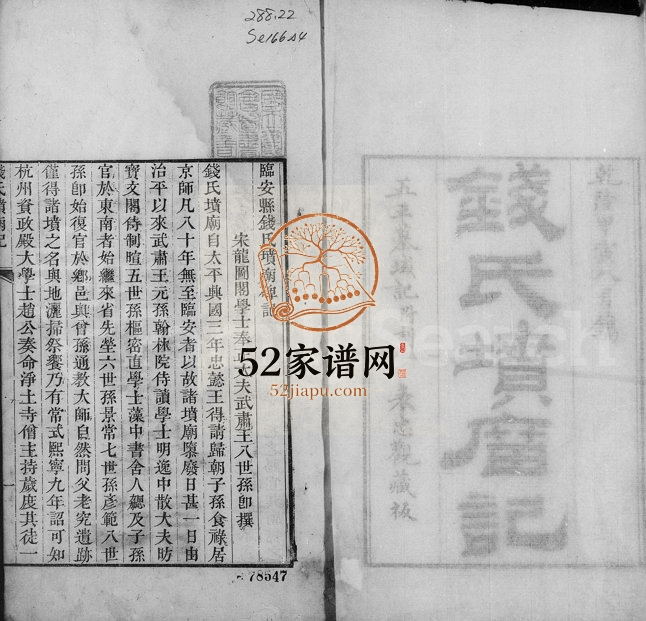 288.22
Se166.04
錢氏墳廟記
來忠觀藏板
臨安縣錢氏墳廟碑記
宋龍圖閣學士奉
夫武肅王八世孫卽撰
錢氏墳廟自太平興國三年忠懿王得請歸朝子孫食祿居
京師凡八十年無至臨安者以故諸墳廟隳廢日甚一日由
治平以來武肅王元孫翰林院侍讀學士明逸中散大夫昉
寶文閣待制暄五世孫樞密直學士藻中書舍人勰及子孫
官於東南者始繼來省先塋六世孫景常七世孫彥範八世
孫卽始復官於鄉邑與曾孫通教大師自然問父老究遺跡
僅得諸墳之名與地灑掃祭饗乃有常式熙寧九年詔可知
杭州資政殿大學士趙公奏命淨土寺僧主持歲度其徒一
錢氏墳廟記
78547
52家谱网
52jiapu.com